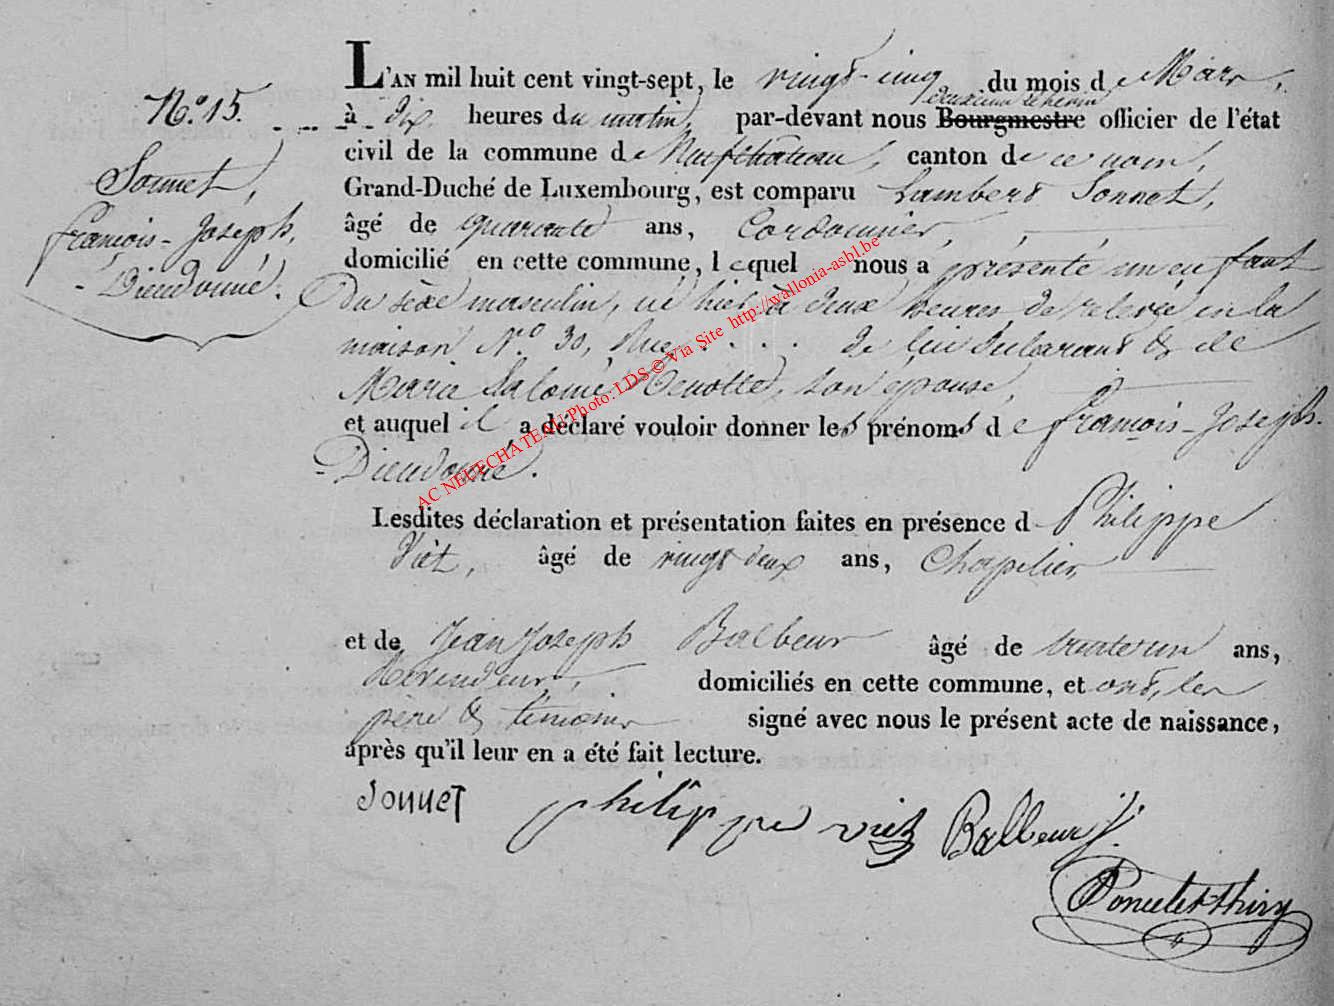 N.º 15.
Sonnet,
françois-Joseph,
-Dieudonné.
L'AN mil huit cent vingt-sept, le vingt-cinq du mois de Mars,
deuxieme échevin
à dix heures du matin par-devant nous Bourgmestre officier de l'état
civil de la commune de Neufchateau, canton de ce nom,
Grand-Duché de Luxembourg, est comparu Lambert Sonnet,
âgé de quarante ans, Cordonnier,
domicilié en cette commune, lequel nous a présenté un enfant
Du sèxe masculin, né hier à deux heures de relevée en la
maison N.º 30, Rue . . . . de lui déclarant & de
Marie Salomé Denotte, son épouse,
et auquel il a déclaré vouloir donner les prénoms de françois-Joseph-
-Dieudonné.
Lesdites déclaration et présentation faites en présence d Philippe
Viet, âgé de vingt deux ans, Chapelier,
et de Jean Joseph Balbeur âgé de trente un ans,
Revendeur, domiciliés en cette commune, et ont, les
père & témoins signé avec nous le présent acte de naissance,
après qu'il leur en a été fait lecture.
Sonnet philippe viet Balbeur J.J.
Poncelet-thiry
AC NEUFCHATEAU Photo: LDS © Via Site http://wallonia-asbl.be